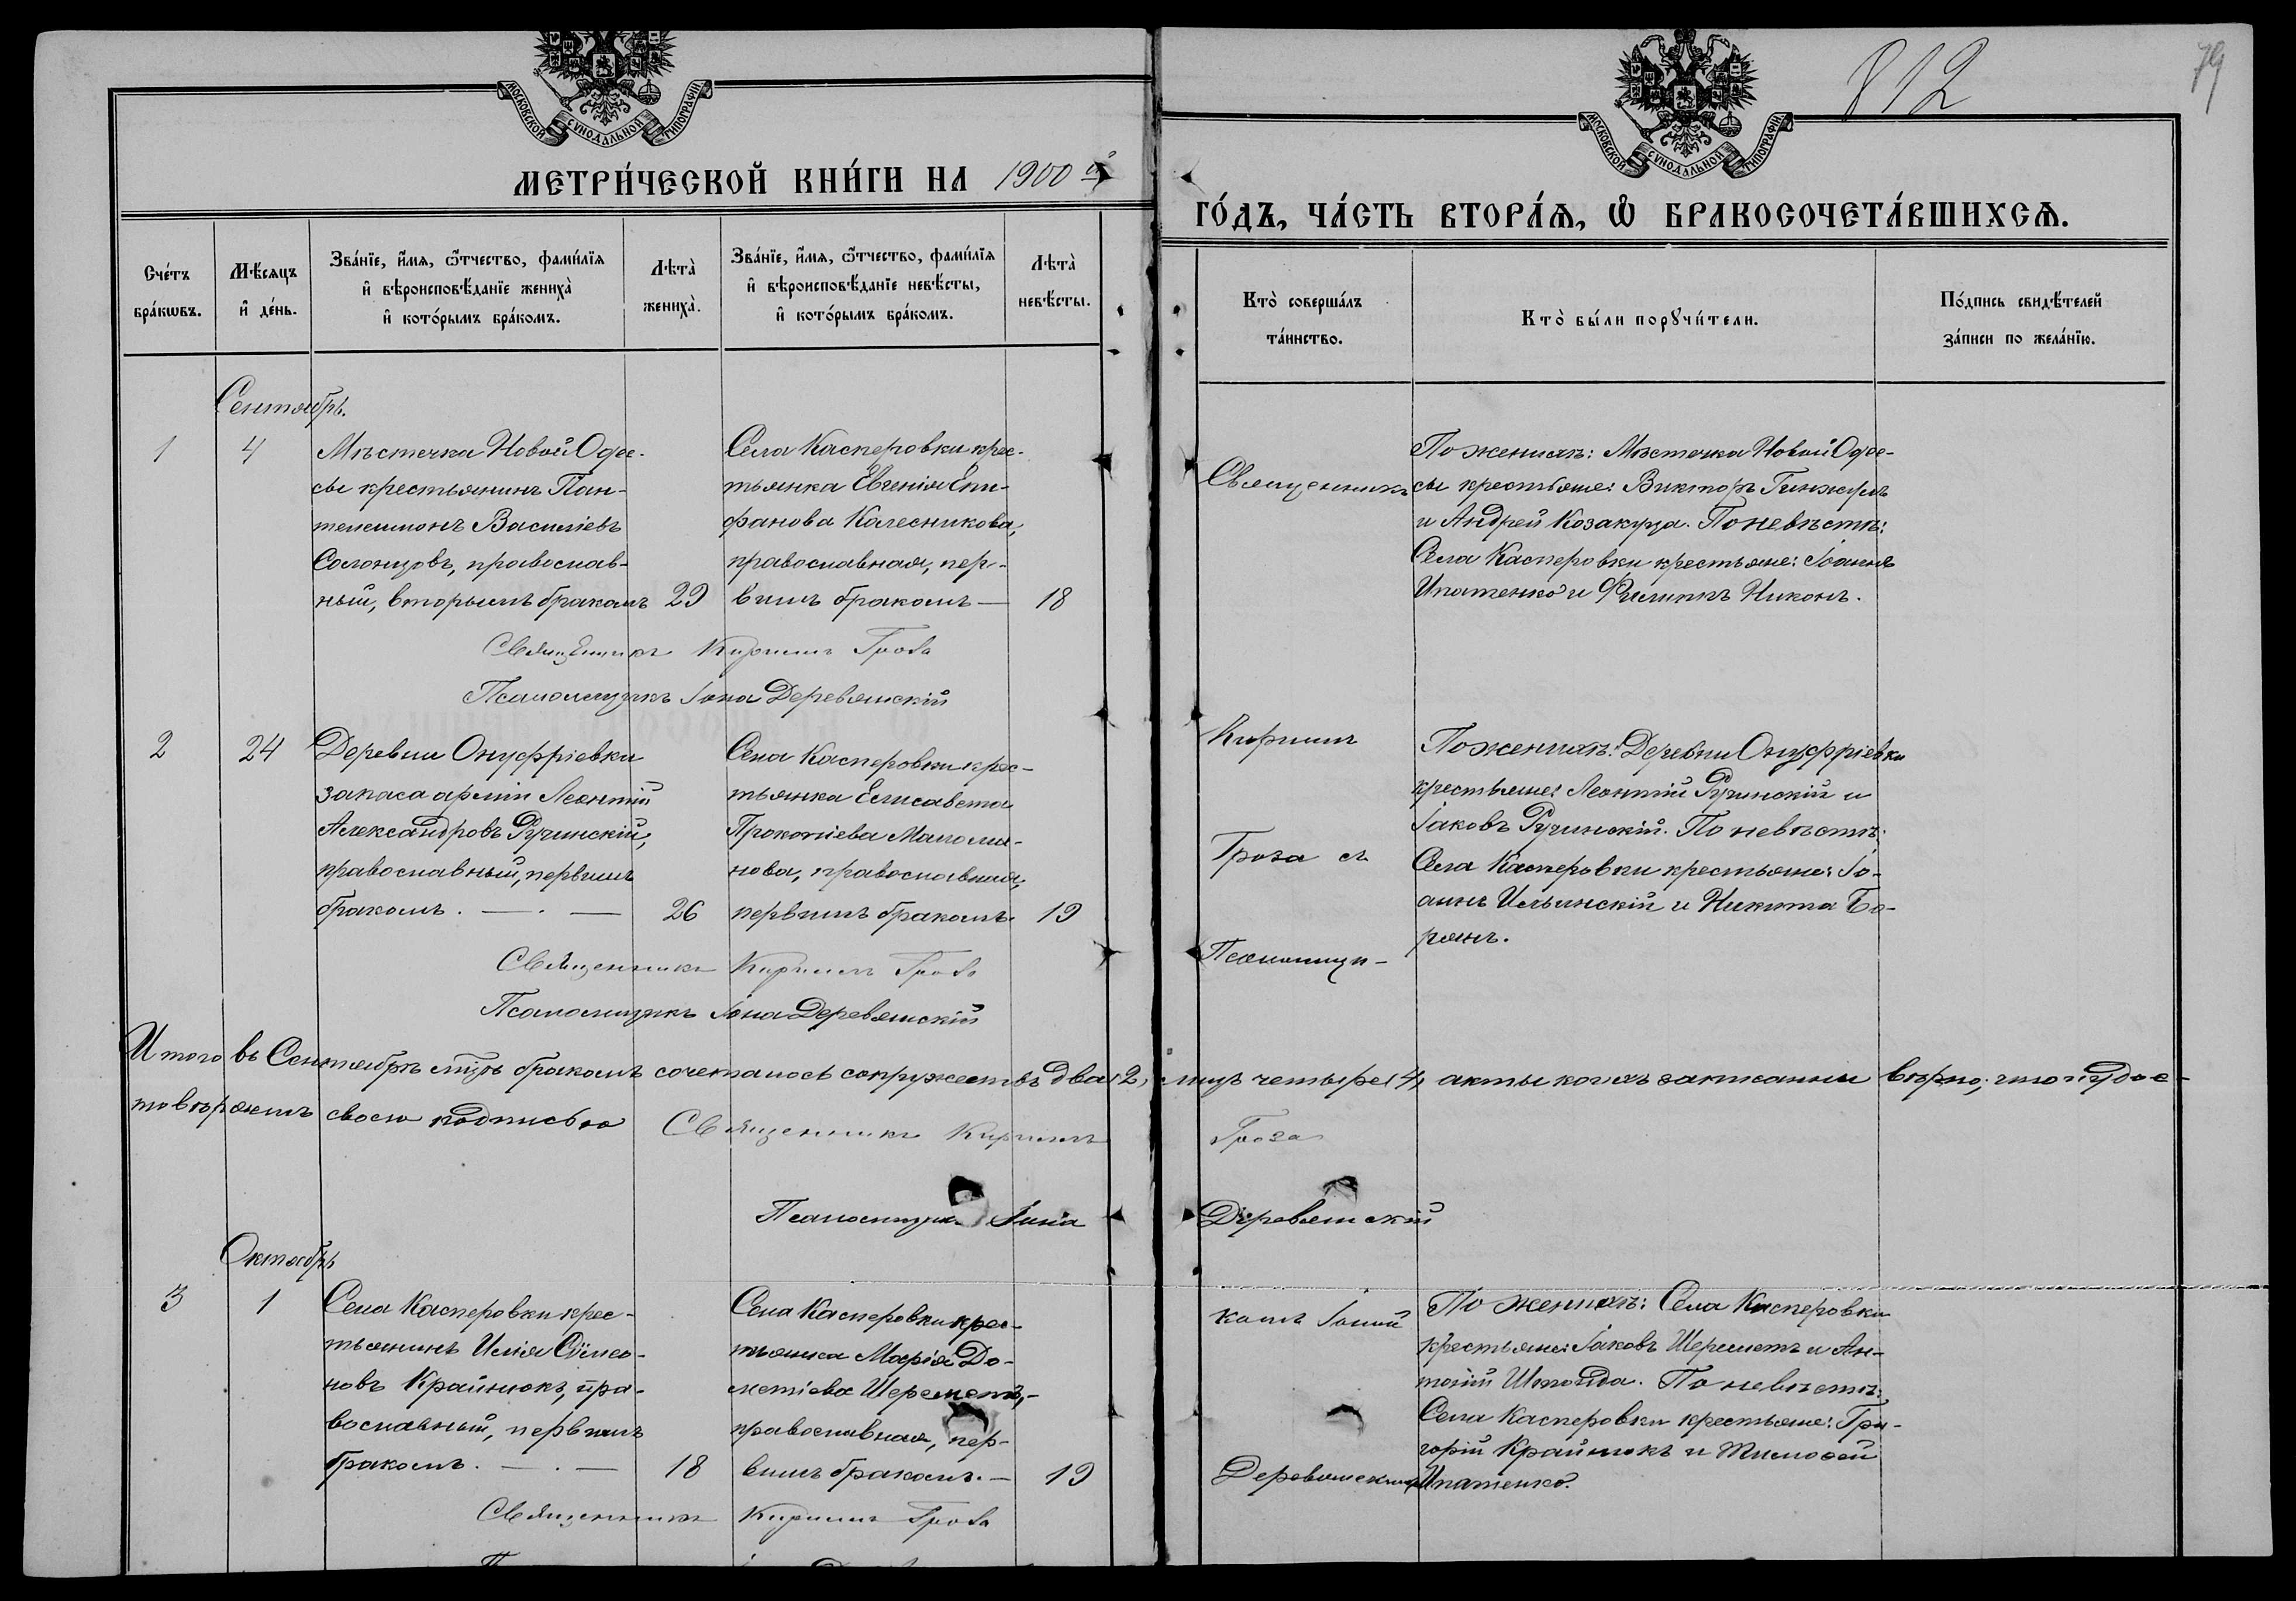 812
79
МОСКОВСКОЙ СѴНОДАЛЬНОЙ ТИПОГРАФІИ
МОСКОВСКОЙ СѴНОДАЛЬНОЙ ТИПОГРАФІИ
МЕТРИ́ЧЕСКОЙ КНИ́ГИ НА 1900й
ГО́ДЪ, ЧА́СТЬ ВТОРА́Ѧ, Ѽ БРАКОСОЧЕТА́ВШИХСѦ.
Сче́тъ бра́кѡвъ.
Мѣ́сяцъ и҆ де́нь.
Зва́нїе, и҆́мѧ, ѻ҆́тчество, фами́лїѧ
и҆ вѣроисповѣ́данїе жениха̀
и҆ кото́рымъ бра́комъ.
Лѣта̀ жениха̀.
Зва́нїе, и҆́мѧ, ѻ҆́тчество, фами́лїѧ
и҆ вѣроисповѣ́данїе невѣ́сты,
и҆ кото́рымъ бра́комъ.
Лѣта̀ невѣ́сты.
Кто̀ соверша́лъ та́инство.
Кто̀ бы́ли порꙋчи́тели.
По́дпись свидѣ́телей за́писи по жела́нїю.
Сентябрь.
1
4
Мѣстечка Новой Одес-
сы крестьянинъ Пан-
телеимонъ Василіевъ
Солонцовъ, православ-
ный, вторымъ бракомъ
29
Села Касперовки крес-
тьянка Евгенія Епи-
фанова Колесникова,
православная, пер-
вымъ бракомъ —
18
Священникъ Кириллъ Гроза
Псаломщикъ Іона Деревянскій
Священникъ
По женихѣ: Мѣстечка Новой Одес-
сы крестьяне: Викторъ Гинжулъ
и Андрей Козакуца. По невѣстѣ:
Села Касперовки крестьяне: Іоаннъ
Ипатенко и Филиппъ Никонъ.
2
24
Деревни Онуфріевки
запаса арміи Леонтій
Александровъ Ручинскій,
православный, первымъ
бракомъ. — . —
26
Села Касперовки крес-
тьянка Елисавета
Прокопіева Маломи-
нова, православная,
первымъ бракомъ.
19
Священникъ Кириллъ Гроза
Псаломщикъ Іона Деревянскій
Кириллъ
Гроза съ
Псаломщи-
По женихѣ: Деревни Онуфріевки
крестьяне: Леонтій Ручинскій и
Іаковъ Ручинскій. По невѣстѣ:
Села Касперовки крестьяне: Іо-
аннъ Ильинскій и Никита Бо-
рянъ.
Итого въ Сентябрѣ мцѣ бракомъ сочеталось супружествъ два 2, лицъ четыре 4, акты коихъ записаны вѣрно, что и удос-
товѣряемъ своею подписью
Священникъ Кириллъ Гроза
Псаломщикъ Іона Деревянскій
Октябрь
3
1
Села Касперовки крес-
тьянинъ Илія Сѵмео-
новъ Крайнюкъ, пра-
вославный, первымъ
бракомъ. — . —
18
Села Касперовки крес-
тьянка Марія До-
метіева Шереметъ,
православная, пер-
вымъ бракомъ. —
19
Священникъ Кириллъ Гроза
комъ Іоной
Деревянскимъ
По женихѣ: Села Касперовки
крестьяне: Іаковъ Шереметъ и Ан-
тоній Шпонда. По невѣстѣ:
Села Касперовки крестьяне: Гри-
горій Крайнюкъ и Тимофей
Ипатенко.